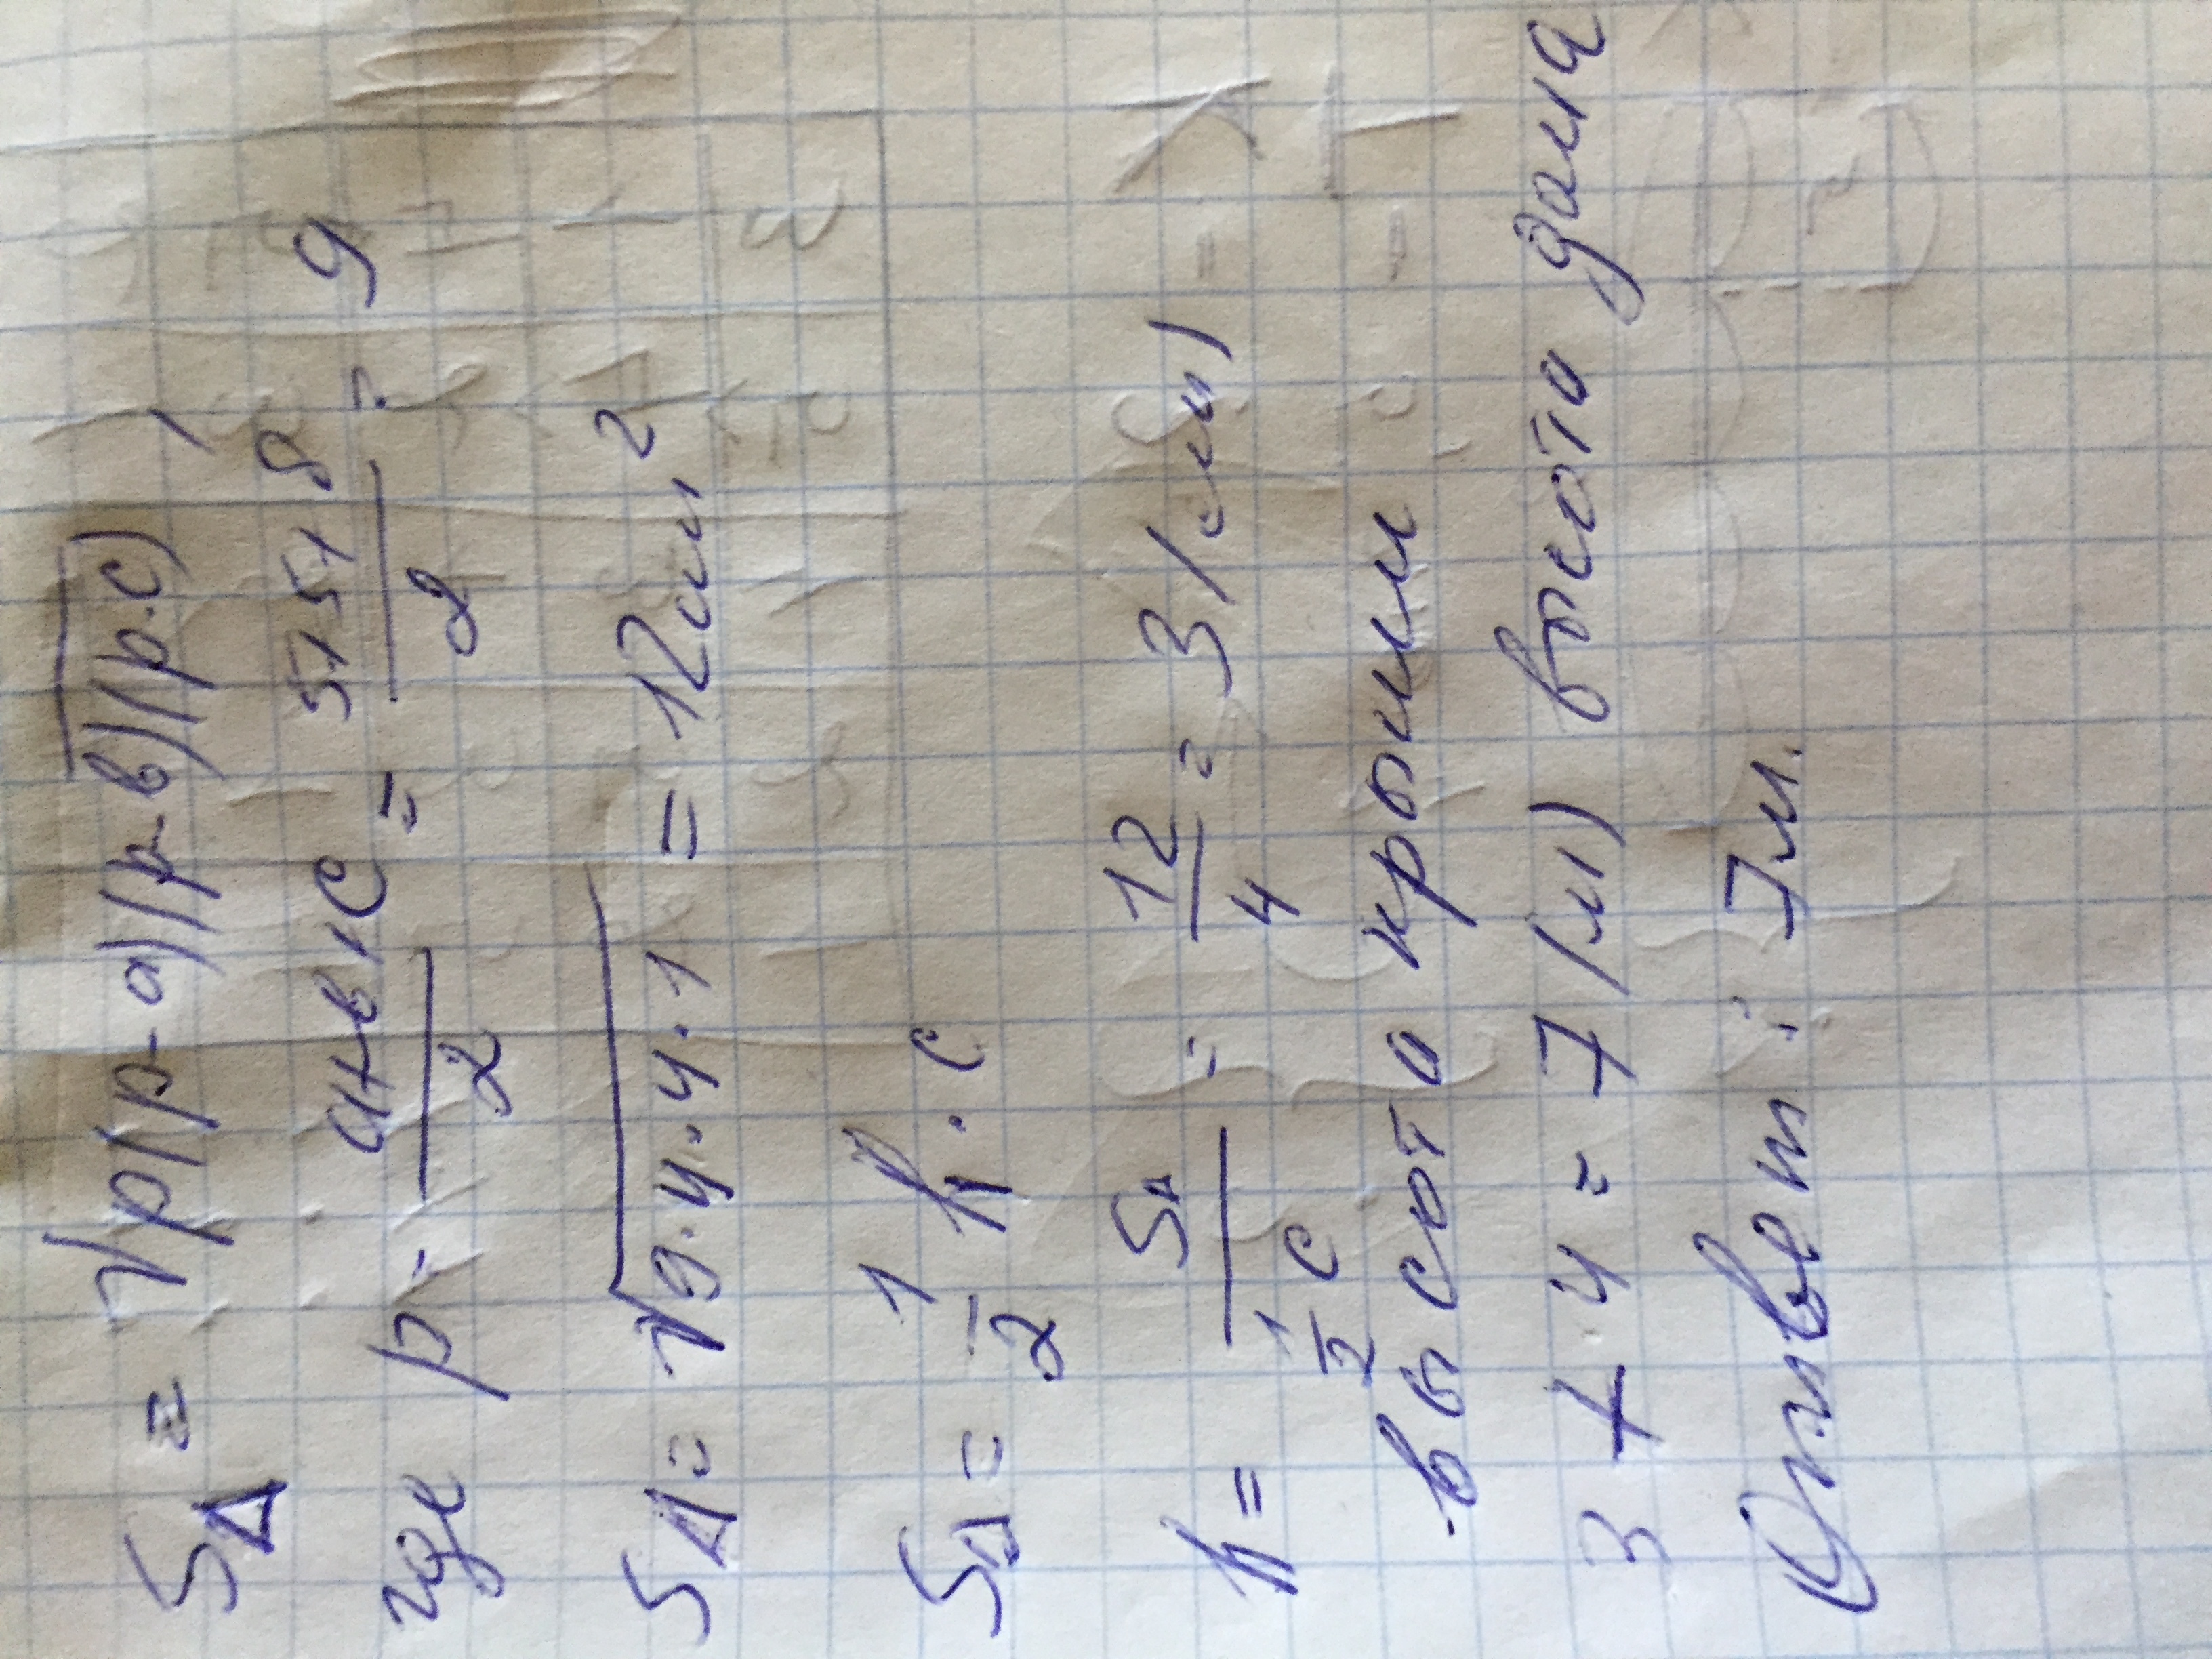 S△ = √p(p-a)(p-в)(p-c) ,
где p = a+в+c / 2 = 5+5+8 / 2 = 9
S△ = √9·4·4·1 = 12 см²
S△ = 1/2 h · c
h = S△ / 1/2 c = 12/4 = 3 (см)
высота крыши
3 + 4 = 7 (м) высота дома
Ответ: 7 м.